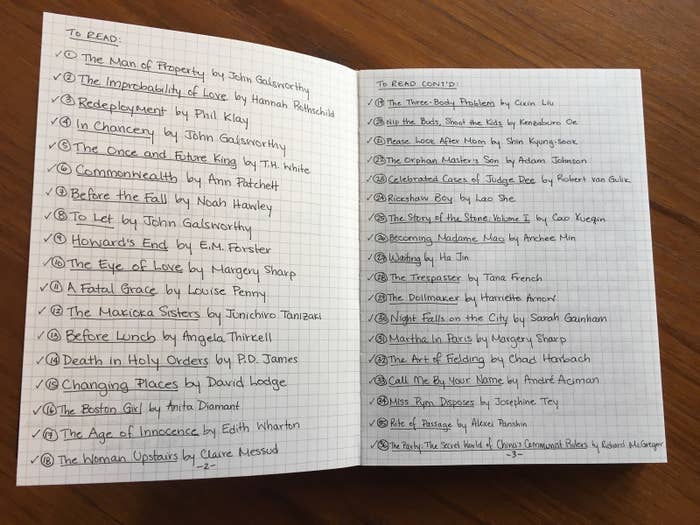 TO READ:
✓① The Man of Property by John Galsworthy
✓② The Improbability of Love by Hannah Rothschild
✓③ Redeployment by Phil Klay
✓④ In Chancery by John Galsworthy
✓⑤ The Once and Future King by T.H. White
✓⑥ Commonwealth by Ann Patchett
✓⑦ Before the Fall by Noah Hawley
✓⑧ To Let by John Galsworthy
✓⑨ Howard's End by E.M. Forster
✓⑩ The Eye of Love by Margery Sharp
✓⑪ A Fatal Grace by Louise Penny
✓⑫ The Makioka Sisters by Junichiro Tanizaki
✓⑬ Before Lunch by Angela Thirkell
✓⑭ Death in Holy Orders by P.D. James
✓⑮ Changing Places by David Lodge
✓⑯ The Boston Girl by Anita Diamant
✓⑰ The Age of Innocence by Edith Wharton
✓⑱ The Woman Upstairs by Claire Messud
-2-
TO READ CONT'D:
✓⑲ The Three-Body Problem by Cixin Liu
✓⑳ Nip the Buds, Shoot the Kids by Kenzaburo Oe
✓㉑ Please Look After Mom by Shin Kyung-sook
✓㉒ The Orphan Master's Son by Adam Johnson
✓㉓ Celebrated Cases of Judge Dee by Robert van Gulik
✓㉔ Rickshaw Boy by Lao She
✓㉕ The Story of the Stone: Volume I by Cao Xueqin
✓㉖ Becoming Madame Mao by Anchee Min
✓㉗ Waiting by Ha Jin
✓㉘ The Trespasser by Tana French
✓㉙ The Dollmaker by Harriette Arnow
✓㉚ Night Falls on the City by Sarah Gainham
✓㉛ Martha In Paris by Margery Sharp
✓㉜ The Art of Fielding by Chad Harbach
✓㉝ Call Me By Your Name by André Aciman
✓㉞ Miss Pym Disposes by Josephine Tey
✓㉟ Rite of Passage by Alexei Panshin
✓㊱ The Party: The Secret World of China's Communist Rulers by Richard McGregor
-3-